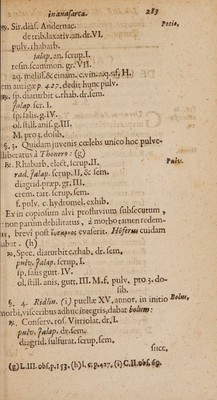 in anasarca. 283
℞. Sir. dias. Andernac.
de trib. laxativ. an. dr. VI.
pulv. rhabarb.
jalap. an. scrup. I.
resin. scammon. gr. VII.
aq. melis. & cinam. c. vin.
p. 427. dedit hunc pulv.
℞. sp. diaturbit c. rhab. dr. sem.
jalap. scr. I.
sp. salis. g. IV.
ol. still. anis. g. III.
M. pro 3. dosib.
§. 3. Quidam juvenis cœlebs unico hoc pulve-
liberatus à Thonero: (g)
℞. Rhabarb. elect. scrup. II.
rad. jalap. scrup. II, & sem.
diagrid. præp. gr. III.
crem. tart. scrup. sem.
f. pulv. c. hydromel. exhib.
Ex in copiosum alvi profluvium subsecutum,
non parum debilitatus, à morbo tamen redem-
brevi post evaserit. Höferus cuidam
(h)
℞. Spec. diaturbit c. rhab. dr. sem.
pulv. jalap. scrup. I.
sp. salis gutt. IV.
ol. still. anis. gutt. III. M. f. pulv. pro 3. do-
sib.
§. 4. Ridlin. (i) puellæ XV. annor. in initio
morbi, visceribus adhuc integris, dabat bolum:
℞. Conserv. ros. Vitriolat. dr. I.
pulv. jalap. dr. sem.
diagrid. sulfurat. scrup. sem.
succ.
(g) L. III. obs. p. 153. (h) l. c. p. 427. (i) C. II. obs. 69.
Potio.
Pulv.
Bolus,